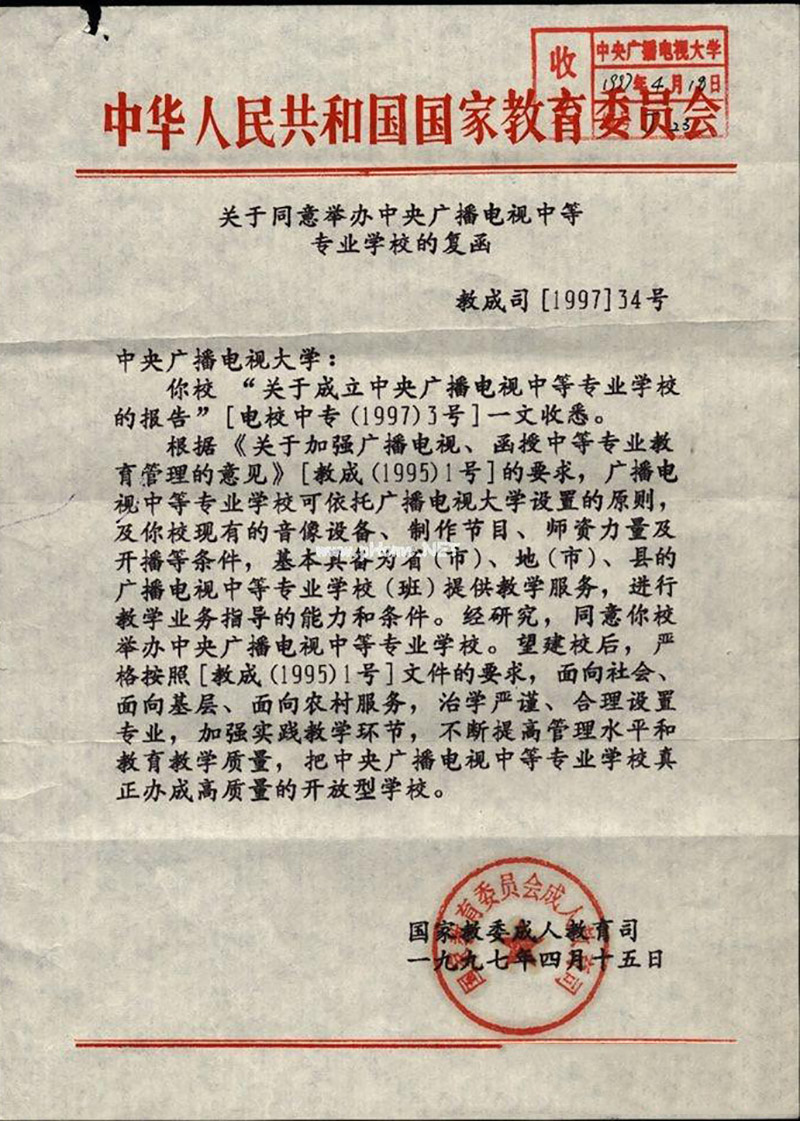 收
中央广播电视大学
1997年4月18日
中华人民共和国国家教育委员会
关于同意举办中央广播电视中等
专业学校的复函
教成司[1997]34号
中央广播电视大学：
你校“关于成立中央广播电视中等专业学校
的报告”[电校中专(1997)3号]一文收悉。
根据《关于加强广播电视、函授中等专业教
育管理的意见》[教成(1995)1号]的要求，广播电
视中等专业学校可依托广播电视大学设置的原则，
及你校现有的音像设备、制作节目、师资力量及
开播等条件，基本具备为省(市)、地(市)、县的
广播电视中等专业学校(班)提供教学服务，进行
教学业务指导的能力和条件。经研究，同意你校
举办中央广播电视中等专业学校。望建校后，严
格按照[教成(1995)1号]文件的要求，面向社会、
面向基层、面向农村服务，治学严谨、合理设置
专业，加强实践教学环节，不断提高管理水平和
教育教学质量，把中央广播电视中等专业学校真
正办成高质量的开放型学校。
国家教委成人教育司
一九九七年四月十五日